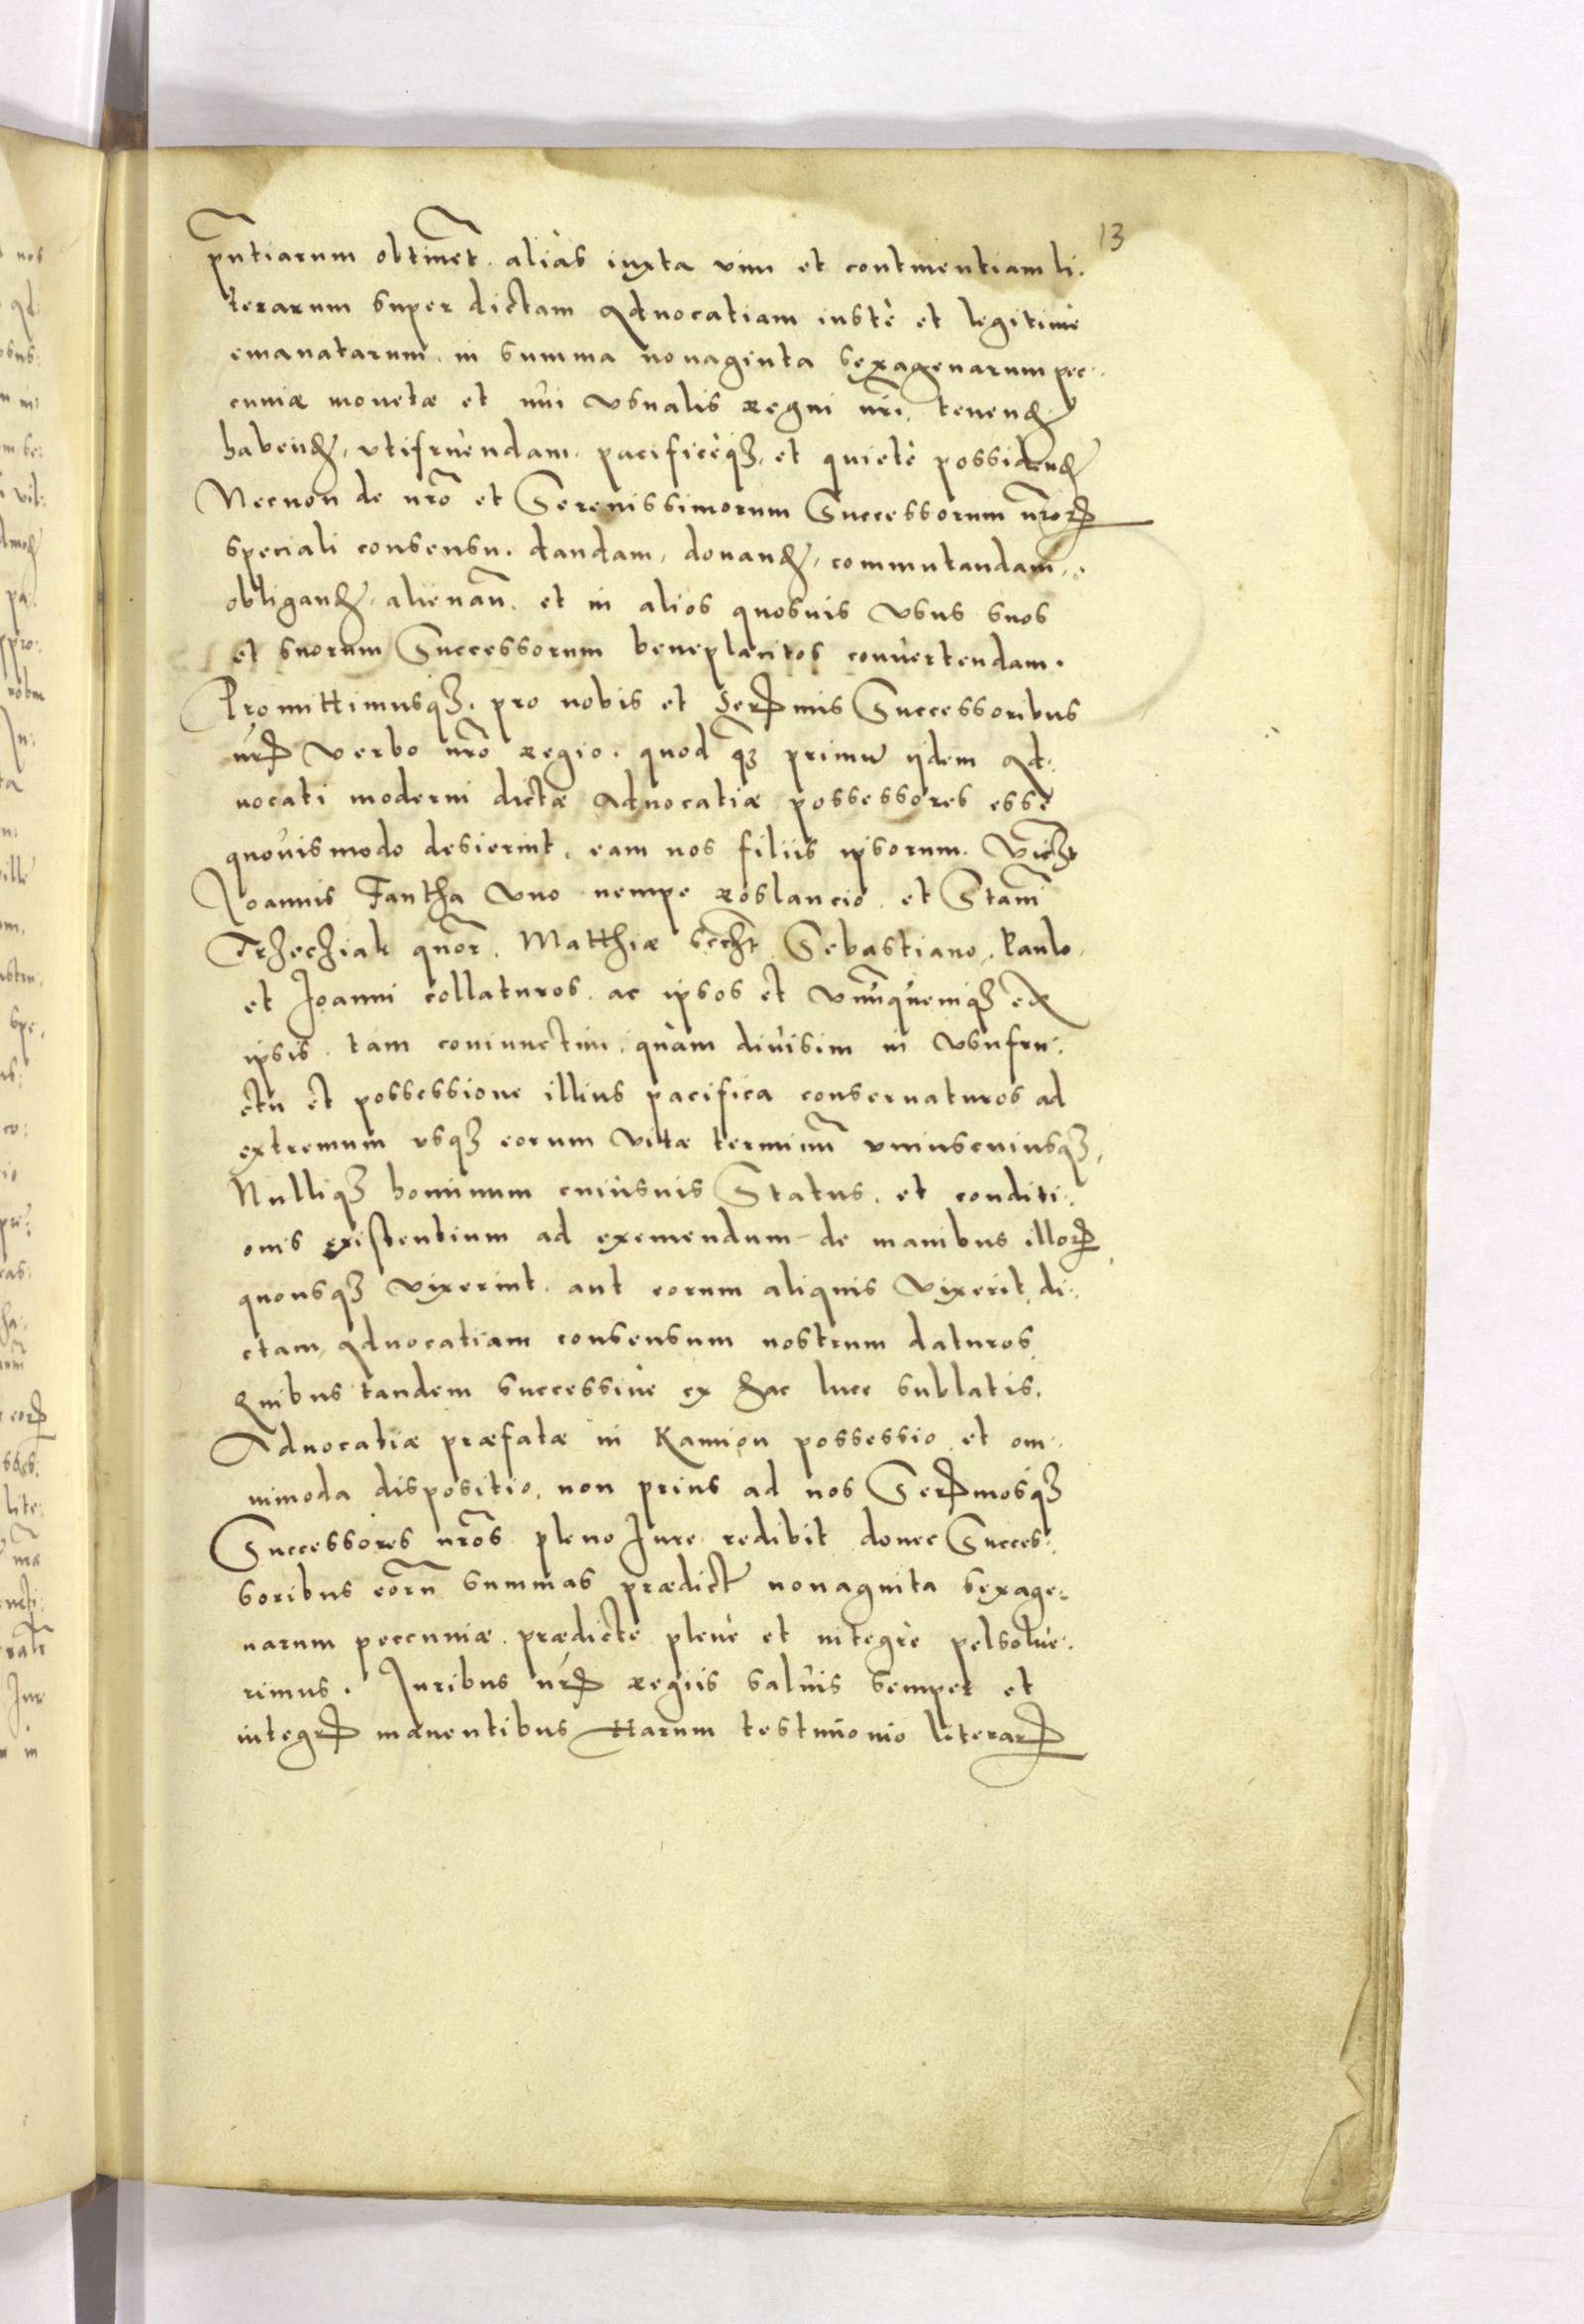 13
pñtiarum obtinẽt. aliàs iuxta vim et continentiam li.
terarum super dictam Aduocatiam iustè et legitimè
emanatarum in summa nonaginta sexagenarum pec.
cuniæ monetæ et nũi vsualis regni nr̃i, tenend
habend, vtifruendam, pacificèq, et quietè possidend
Necnon de nrõ et Serenissimorum Successorum nr̃or
speciali consensu. dandam, donand, commutandam,
obligand, alienañ. et in alios quosuis vsus suos
et suorum Successorum beneplacitos conuertendam.
Promittimusq. pro nobis et Ser mis Successoribus
nr verbo nrõ regio. quod q primũ ijdem Ad:
uocati moderni dictæ Aduocatiæ possessores esse
quouismodo desierint, eam nos filiis ipsorum.
Joannis Fantha vno nempe roslancio et Stañi
Trzecziak Matthiæ Sebastiano, Paulo,
et Joanni collaturos. ac ipsos et vnũquemq ex
ipsis tam coniunctim, quàm diuisim in vsufru:
ctu et possessione illius pacifica conseruaturos ad
extremum vsq eorum vitæ terminũ vniuscuiusq,
Nulliq hominum cuiusuis Status, et conditi:
onis existentium ad exemendum de manibus illor
quousq vixerint, aut eorum aliquis vixerit, di:
ctam Aduocatiam consensum nostrum daturos
Quibus tandem successiuè ex hac luce sublatis,
Aduocatiæ præfatæ in Kamion possessio et om:
nimoda dispositio, non prius ad nos Ser mosq
Successores nrõs pleno Jure redibit donec Succes:
soribus eorũ summas prædict nonaginta sexage:
narum peccuniæ prædicte plenè et integrè pelsolue:
rimus. Juribus nr regiis saluis semper et
integr manentibus Harum testimonio literar